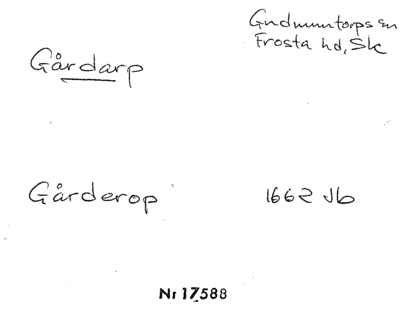 Gudmuntorps sn
Frosta hd, Sk
Gårdarp
Gårderop 1662 Jb
Nr 17588